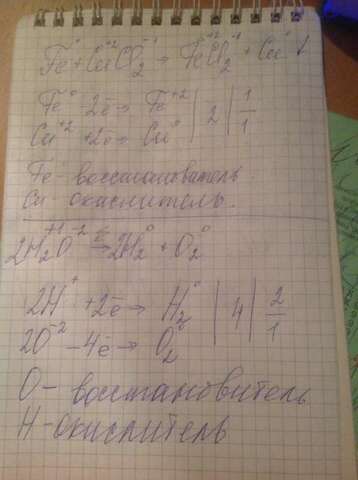 Fe⁰ + Cu⁺²Cl₂⁻¹ → Fe⁺²Cl₂⁻¹ + Cu⁰ ↓
Fe⁰ - 2e → Fe⁺² | 2 | 1
Cu⁺² + 2e → Cu⁰ | | 1
Fe⁰ - восстановитель.
Cu - окислитель.
2H₂⁺¹O⁻² → 2H₂⁰ + O₂⁰
2H⁺ + 2e → H₂⁰ | 4 | 2
2O⁻² - 4e → O₂⁰ | | 1
O - восстановитель
H - окислитель